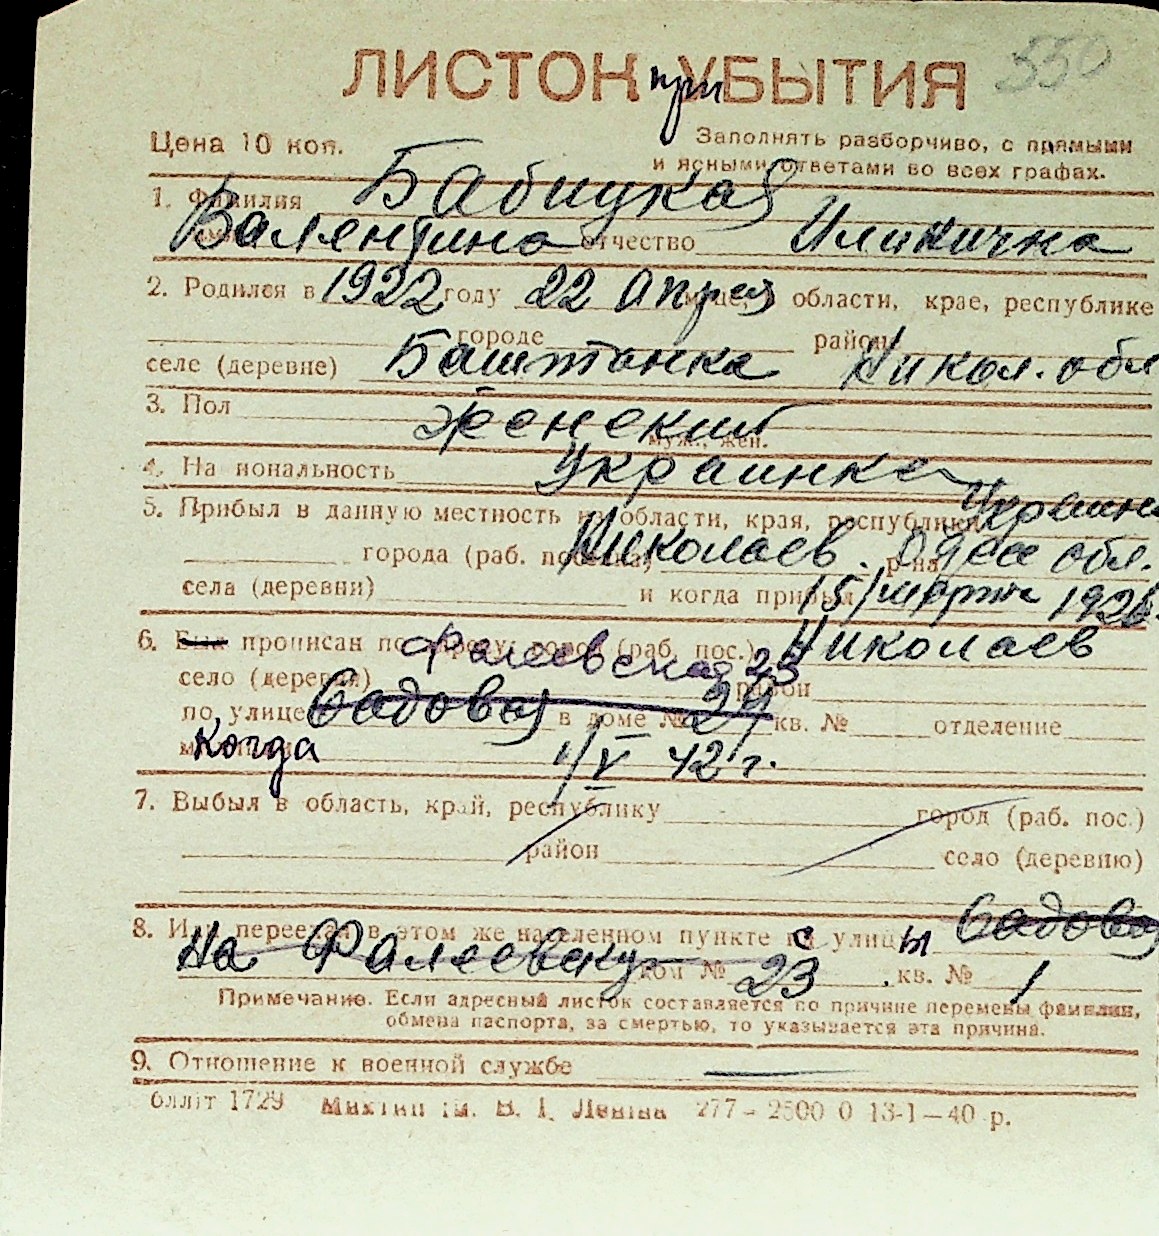 ЛИСТОК при УБЫТИЯ 550
Цена 10 коп.
Заполнять разборчиво, с прямыми
и ясными ответами во всех графах.
1. Фамилия Бабицкая
Валентина отчество Иликична
2. Родился в 1922 году 22 Апреля области, крае, республике
городе район
селе (деревне) Баштанка Никол. обл
3. Пол женский
муж., жен.
4. На иональность Украинка
5. Прибыл в данную местность из области, края, республики Украин
города (раб. поселка) Николаев. р-на Одесс обл.
села (деревни) и когда прибыл 15/марта 192
6. Был прописан по адресу: город (раб. пос.) Николаев
Фалеевская 23
село (деревня) район
по улице Садовая в доме № 29 кв. № отделение
когда 1/V 42 г.
7. Выбыл в область, край, республику город (раб. пос.)
район село (деревню)
8. Или переехал в этом же населенном пункте с улицы Садовая
На Фалеевскую дом № 23, кв. № 1
Примечание. Если адресный листок составляется по причине перемены фамилии,
обмена паспорта, за смертью, то указывается эта причина.
9. Отношение к военной службе —
блліт 1729 ім. В. І. Леніна 277 – 2500 0 13-1—40 р.